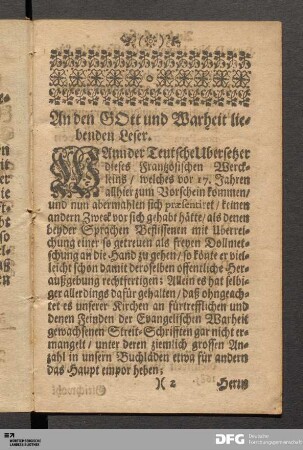 An den GOtt und Warheit lie-
benden Leser.
WAnn der Teutsche Ubersetzer
dieses Französischen Werck-
leins / welches vor 17. Jahren
allhier zum Vorschein kommen /
und nun abermahlen sich præsentiret / keinen
andern Zweck vor sich gehabt hätte / als denen
beyder Sprachen Beflissenen mit Uberrei-
chung einer so getreuen als freyen Dollmet-
schung an die Hand zu gehen / so könte er viel-
leicht schon damit derofelben offentliche Her-
außgebung rechtfertigen: Allein es hat selbi-
ger allerdings dafür gehalten / daß ohngeach-
tet es unserer Kirchen an fürtrefflichen und
denen Feinden der Evangelischen Warheit
gewachsenen Streit-Schrifften gar nicht er-
mangelt / unter deren ziemlich grossen An-
zahl in unsern Buchläden etwa für andern
das Haupt empor heben:
)( 2 Herrn
DFG
Deutsche
Forschungsgemeinschaft